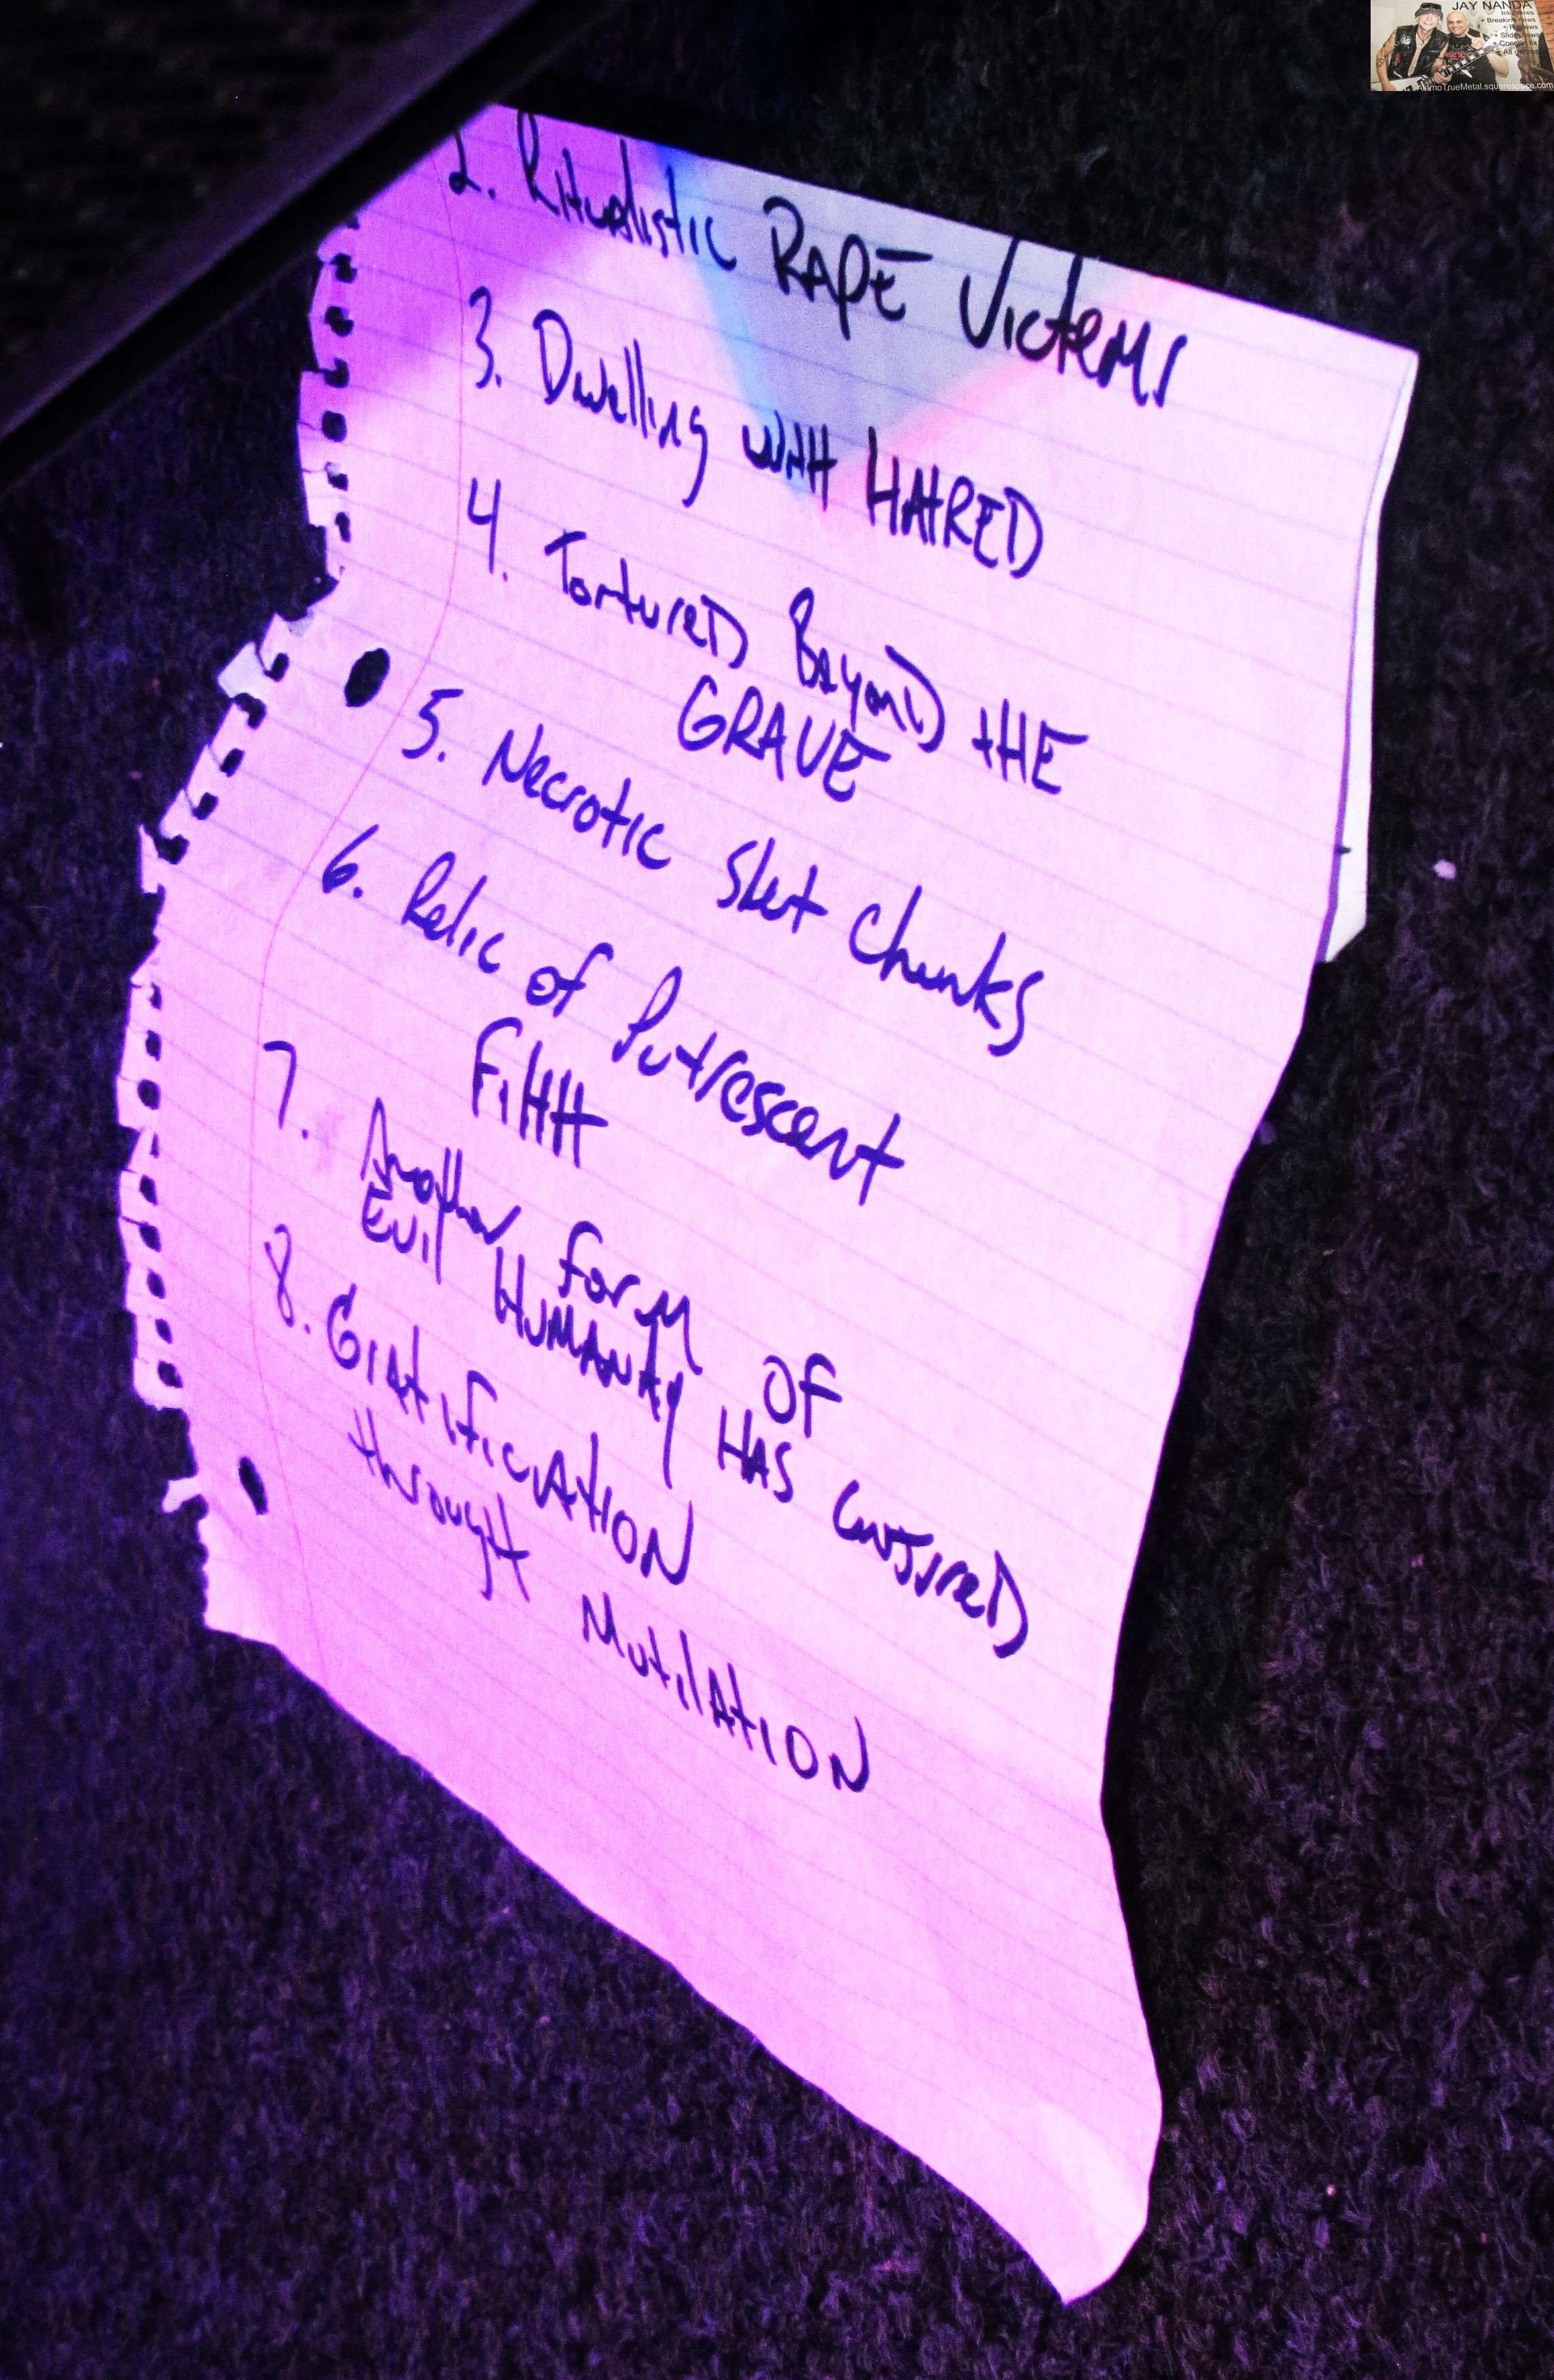 JAY NANDA
Interviews
+ Breaking news
+ Reviews
+ Slideshows
+ Concert pix
+ All genres
AlamoTrueMetal.squarespace.com
2. Ritualistic RAPE VictEMS
3. Dwelling with HATRED
4. TortureD BayonD tHE
GRAVE
5. Necrotic Slut Chunks
6. Relic of Putrescent
FiltH
7. Another Form OF
Evil HUMANity HAS
8. GratificATION
through MutilAtION